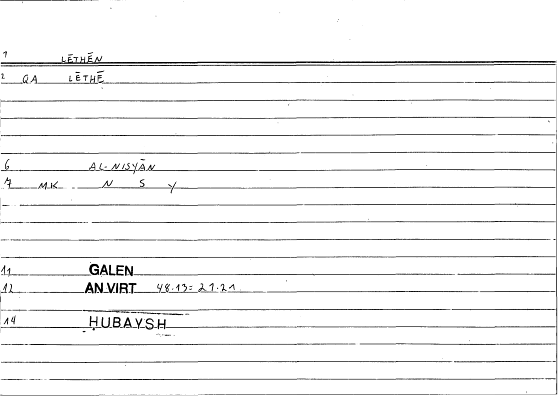 1 LĒTHĒN
2 QA LĒTHĒ
6 AL-NISYĀN
7 MK N S Y
11 GALEN
12 AN VIRT 48.13 = 21.21
14 ḤUBAYSH